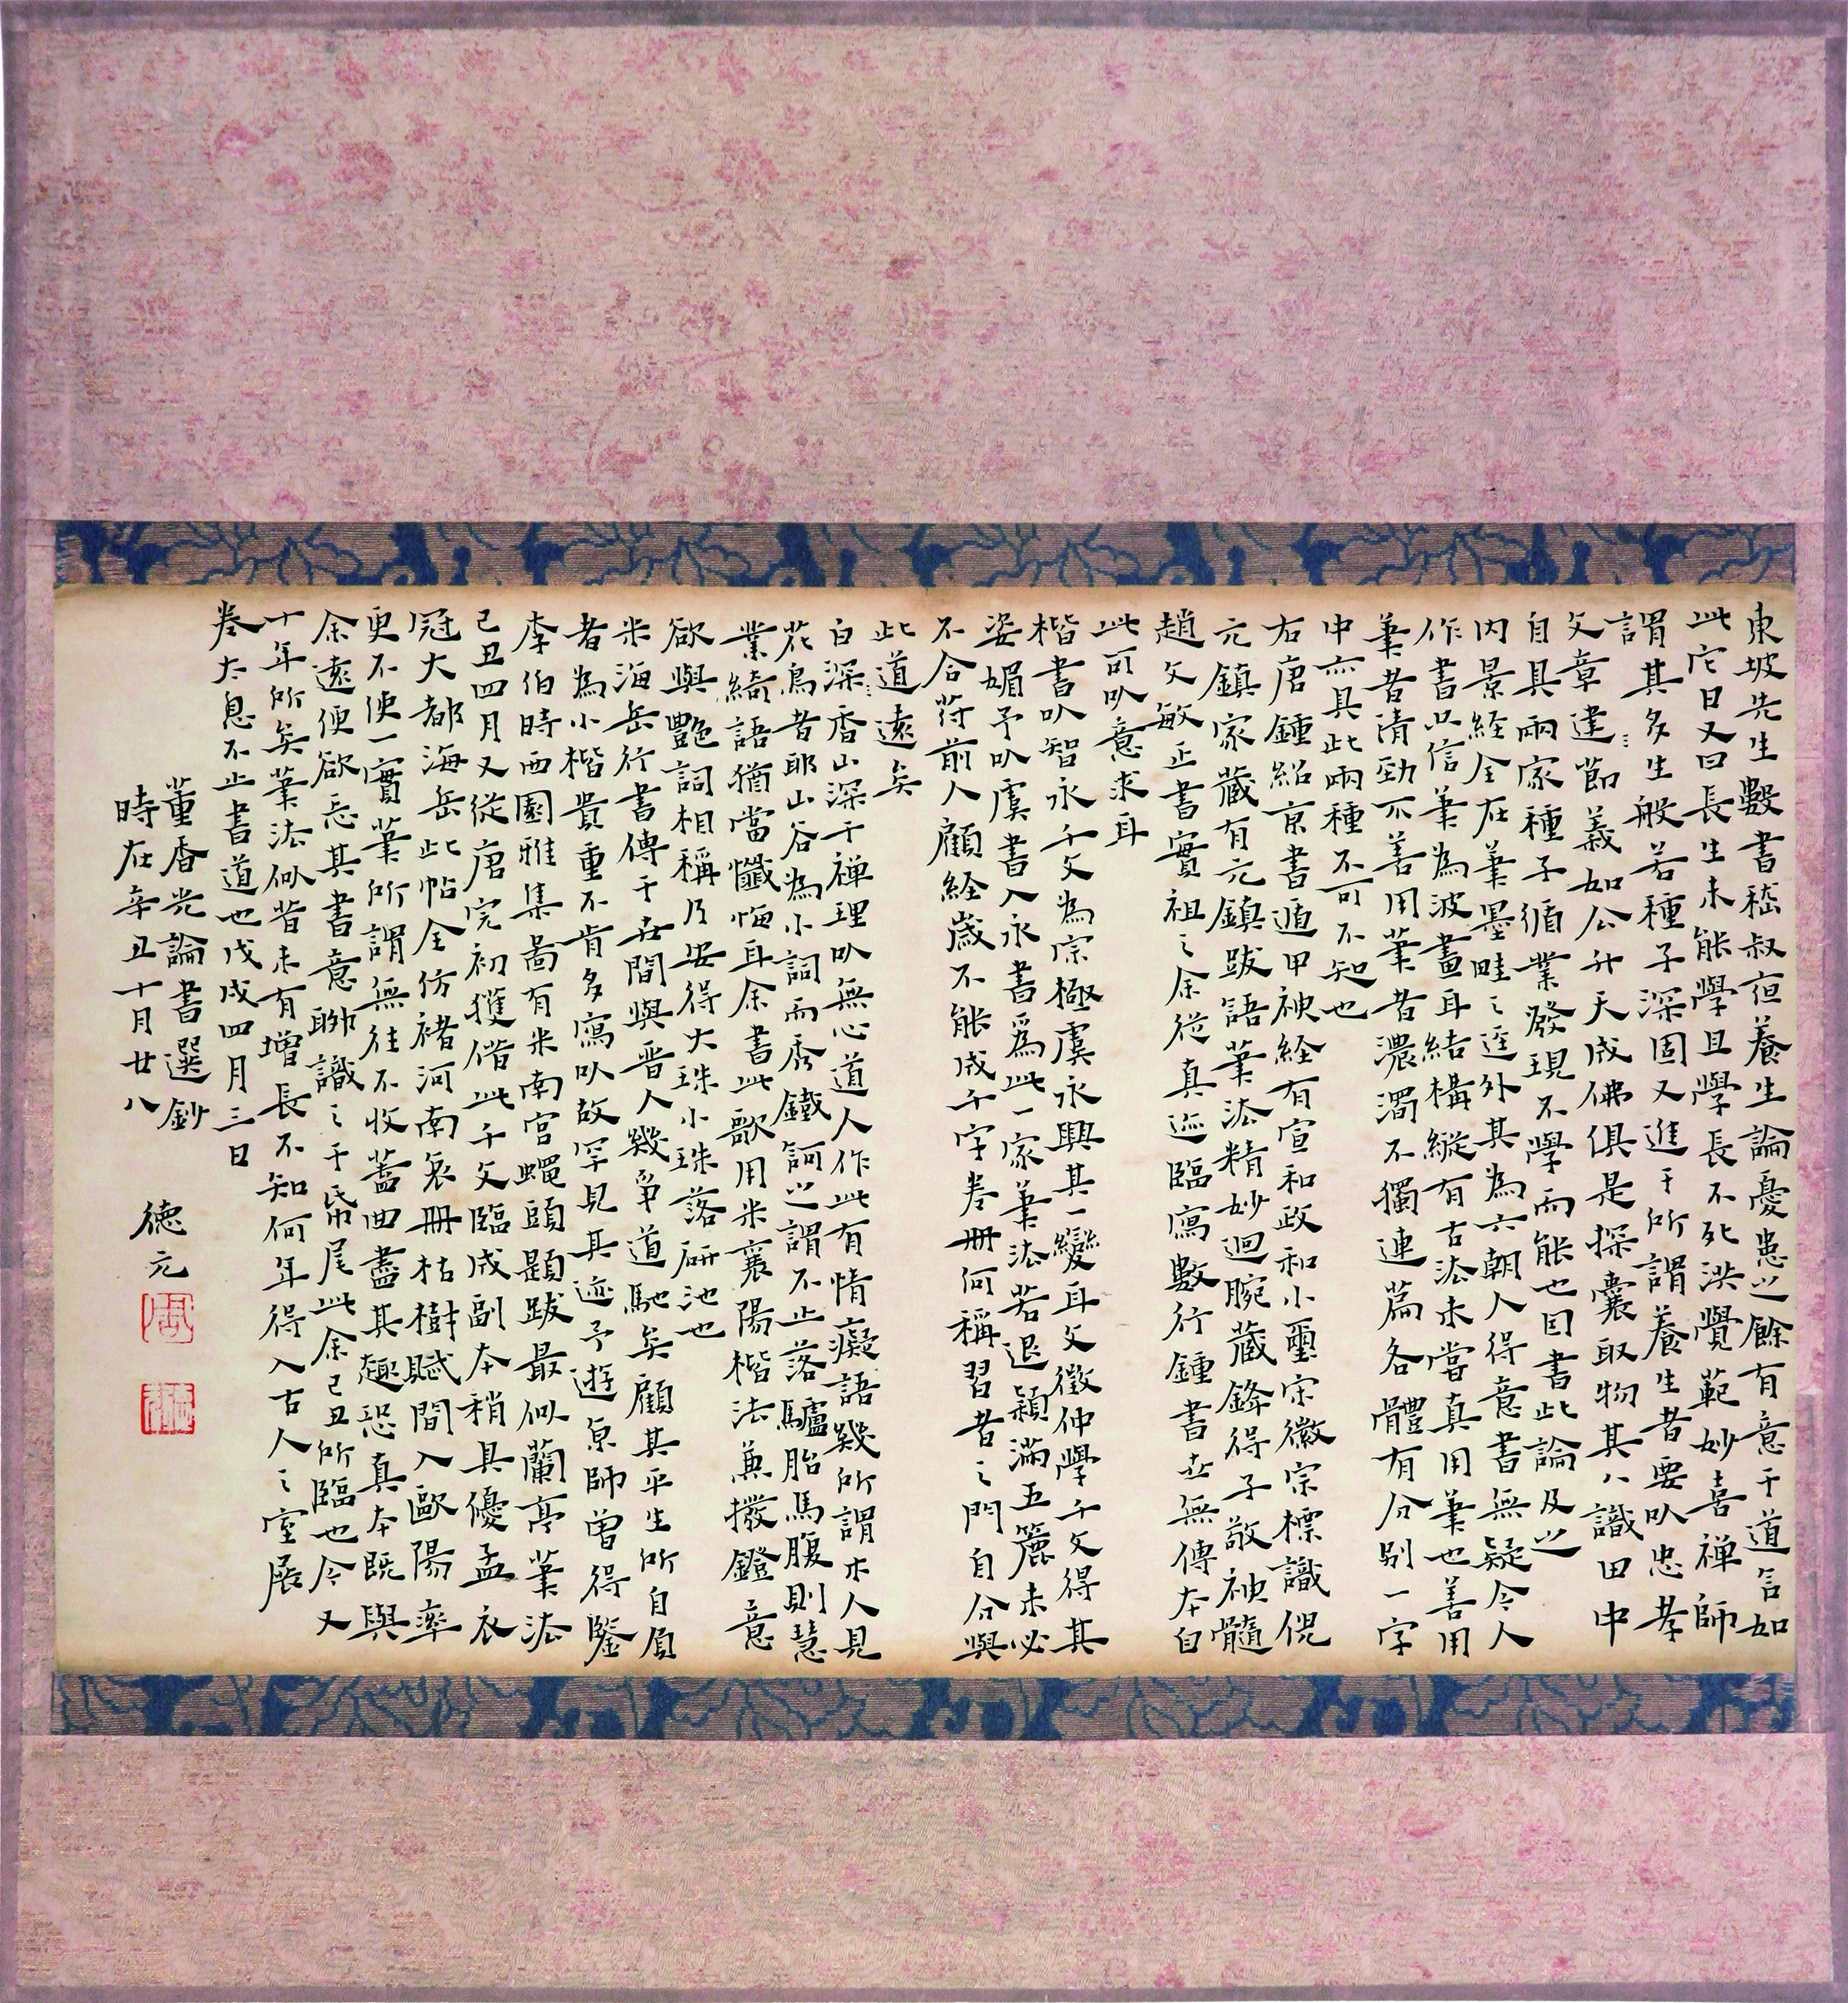 東坡先生數書嵇叔夜養生論憂患之餘有意于道言如
此它日又曰長生未能學且學長不死洪覺範妙喜禪師
謂其多生般若種子深固又進于所謂養生者要以忠孝
文章建節義如公升天成佛俱是探囊取物其八識田中
自具兩家種子循業發現不學而能也因書此論及之
內景経全在筆墨畦之逕外其為六朝人得意書無疑今人
作書只信筆為波畫耳結構縱有古法未嘗真用筆也善用
筆者清勁不善用筆者濃濁不獨連篇各體有分別一字
中亦具此兩種不可不知也
右唐鍾紹京書遁甲神経有宣和政和小璽宋徽宗標識倪
元鎮家藏有元鎮跋語筆法精妙迴腕藏鋒得子敬神髓
趙文敏正書實祖之余從真迹臨寫數行鍾書世無傳本自
此可以意求耳
楷書以智永千文為宗極虞永興其一變耳文徵仲學千文得其
姿媚予以虞書入永書為此一家筆法若退穎滿五簏未必
不合符前人顧経歲不能成千字卷冊何稱習者之門自分與
此道遠矣
白深香山深于禪理以無心道人作此有情癡語幾所謂木人見
花鳥者耶山谷為小詞而秀鐵訶之謂不止落驢胎馬腹則慧
業綺語猶當懺悔耳余書此歌用米襄陽楷法兼撥鐙意
欲與艷詞相稱乃安得大珠小珠落研池也
米海岳行書傳于世間與晋人幾爭道馳矣顧其平生所自負
者為小楷貴重不肯多寫以故罕見其迹予遊京師曽得鑒
李伯時西園雅集啚有米南宮蠅頭題跋最似蘭亭筆法
己丑四月又從唐完初獲借此千文臨成副本稍具優孟衣
冠大都海岳此帖全仿褚河南哀冊枯樹賦間入歐陽率
更不使一實筆所謂無往不收蓋曲盡其趣恐真本既與
余遠便欲忘其書意聊識之于帋尾此余己丑所臨也今又
十年所矣筆法似昔未有增長不知何年得入古人之室展
卷太息不止書道也戊戌四月三日
董香光論書選鈔
時在辛丑十月廿八 德元